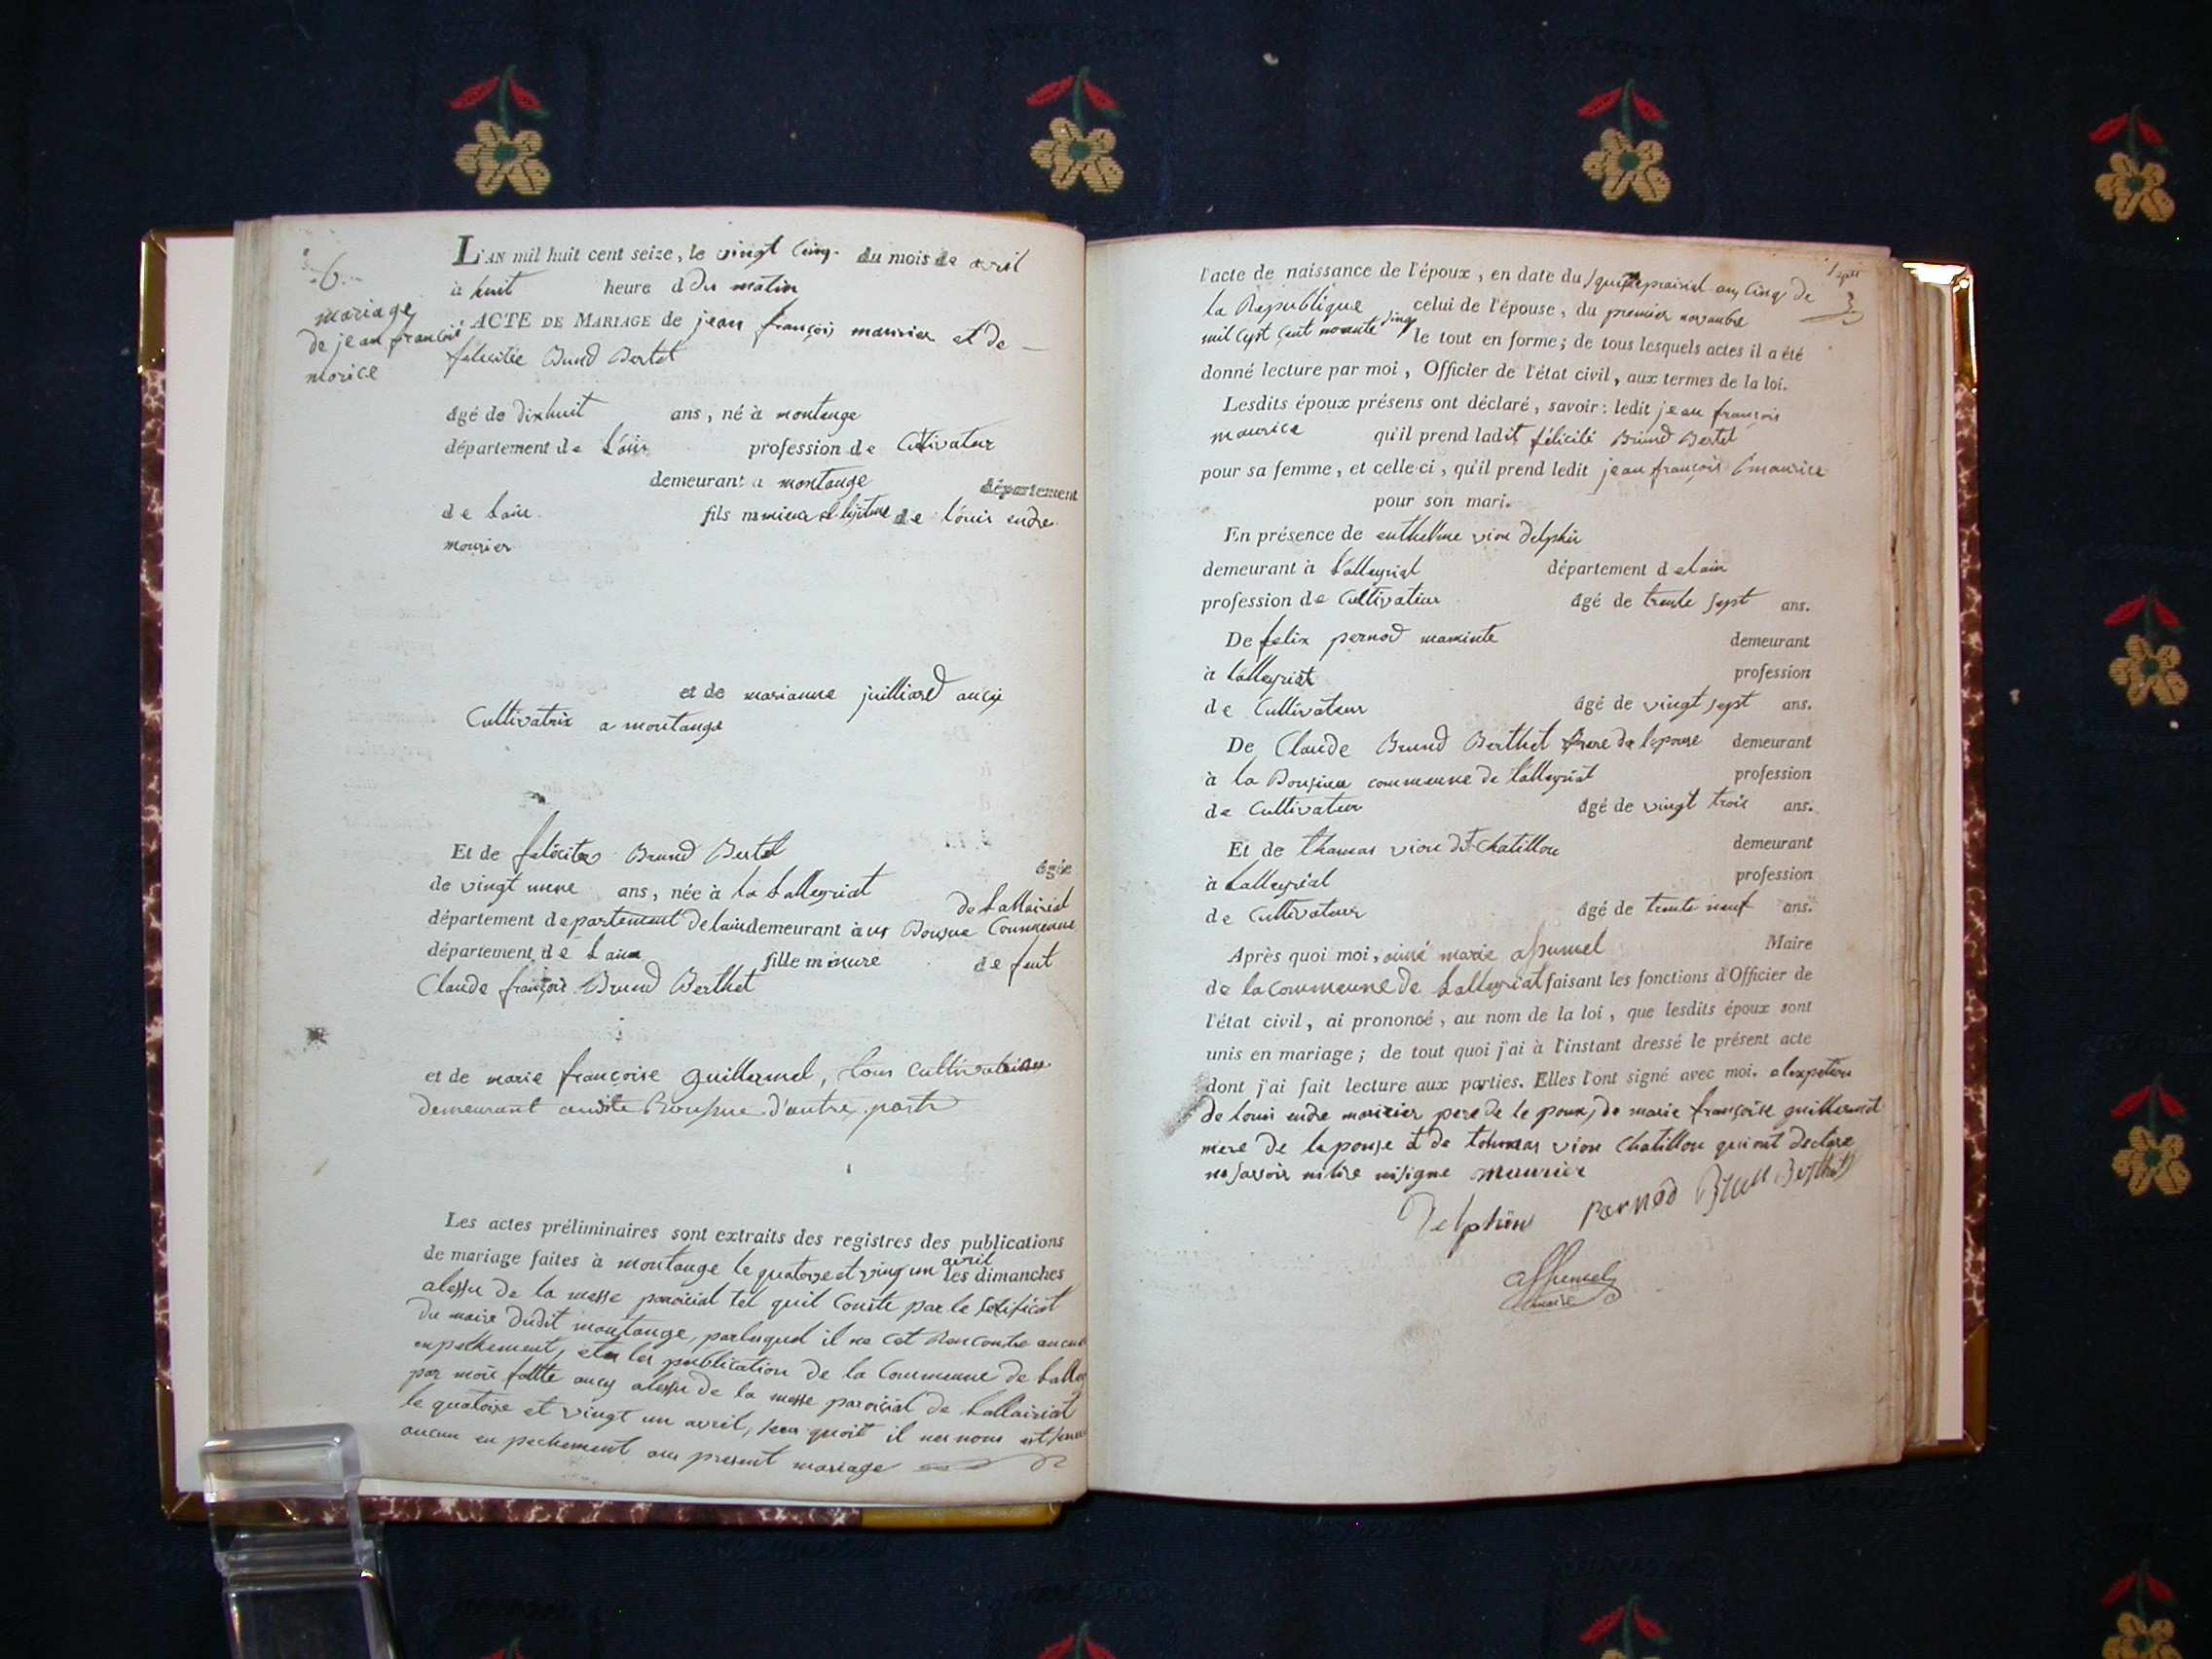 6
mariage
de jean françois
morice
L'AN mil huit cent seize, le vingt cinq du mois de avril
à huit heure d du matin
ACTE DE MARIAGE de jean françois maurier et de
félicitée Brund Bertet
âgé de dixhuit ans, né à montange
département de L'ain profession de Cultivateur
demeurant a montange département
de Lain fils mineur et légitime de Louis endre
mourier
et de marianne juilliard aucy
Cultivatrix a montange
Et de felicite Brund Bertet âgée
de vingt une ans, née à la Lalleyriat
département departement de lain demeurant à ur Bouque Commune de Lallairiat
département de Lain fille mineure de feut
Claude françois Brund Berthet
et de marie françoise guillermet, tous cultivateur
demeurant audite d'autre part
Les actes préliminaires sont extraits des registres des publications
de mariage faites à montange le quatorze et ving un avril les dimanches
alessu de la messe paroicial tel quil Conste par le Sertificat
du maire dudit montange, parlequel il ne cet Rencontre aucun
enpechement, et les publication de la Commune de Lalley
par moi faitte aucy alessu de la messe paroicial de Lallairiat
le quatorze et vingt un avril, quoit il ne nous est
aucun enpechement au present mariage
l'acte de naissance de l'époux, en date du prairial an Cinq de
la Republique celui de l'épouse, du premier novembre
mil cept cent nonante cinq le tout en forme; de tous lesquels actes il a été
donné lecture par moi, Officier de l'état civil, aux termes de la loi.
Lesdits époux présens ont déclaré, savoir: ledit jean françois
maurice qu'il prend ladit félicité Brund Bertet
pour sa femme, et celle-ci, qu'il prend ledit jean françois maurice
pour son mari.
En présence de enthelme vion delphin
demeurant à Lalleyriat département de lain
profession de Cultivateur âgé de trente sept ans.
De felix pernod maminte demeurant
à Lalleyriat profession
de Cultivateur âgé de vingt sept ans.
De Claude Brund Berthet frere de lepouse demeurant
à la commune de Lalleyriat profession
de Cultivateur âgé de vingt trois ans.
Et de thomas vion dt Chatillon demeurant
à Lalleyriat profession
de Cultivateur âgé de trente neuf ans.
Après quoi moi, aimé marie Maire
de la commune de Lalleyriat faisant les fonctions d'Officier de
l'état civil, ai prononcé, au nom de la loi, que lesdits époux sont
unis en mariage; de tout quoi j'ai à l'instant dressé le présent acte
dont j'ai fait lecture aux parties. Elles l'ont signé avec moi. alexpetion
de louis endre maurier pere de le poux, de marie françoise guillermet
mere de lepouse et de tohmas vion Chatillon qui ont declare
ne savoir ni lire ni signe maurier
Delphin Pernod Brun Berthet
maire